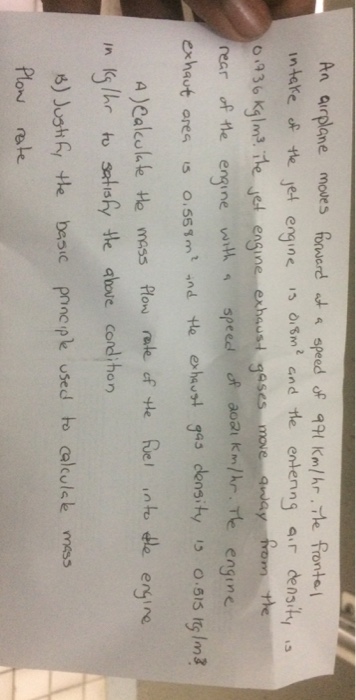 An airplane moves forward at a speed of 971 Km/hr. The frontal
intake of the jet engine is 0.8m² and the entering air density is
0.736 Kg/m³. The jet engine exhaust gases move away from the
rear of the engine with a speed of 2021 Km/hr. The engine
exhaut area is 0.558m² and the exhaust gas density is 0.515 Kg/m³.
A) Calculate the mass flow rate of the fuel into the engine
in Kg/hr to satisfy the above condition
B) Justify the basic principle used to calculate mass
flow rate